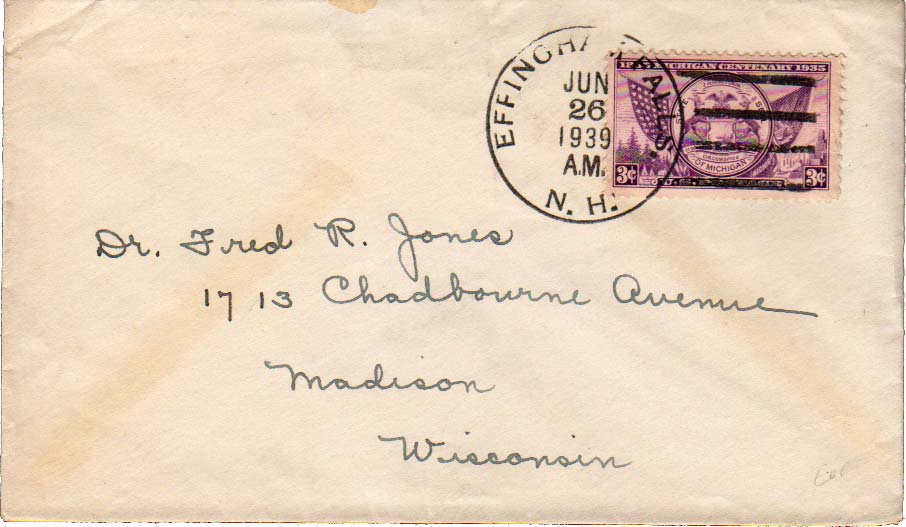 EFFINGHAM FALLS.
JUN
26
1939
A.M.
N. H.
1835 MICHIGAN CENTENARY 1935
STATE SEAL
OF MICHIGAN
3¢ 3¢
Dr. Fred R. Jones
1713 Chadbourne Avenue
Madison
Wisconsin